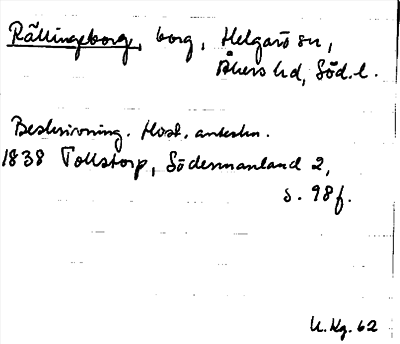 Rällingeborg, borg, Helgarö sn,
Åkers hd, Söd. l.
Beskrivning. Hist. anteckn.
1838 Tollstorp, Södermanland 2,
s. 98f.
U. Kg. 62